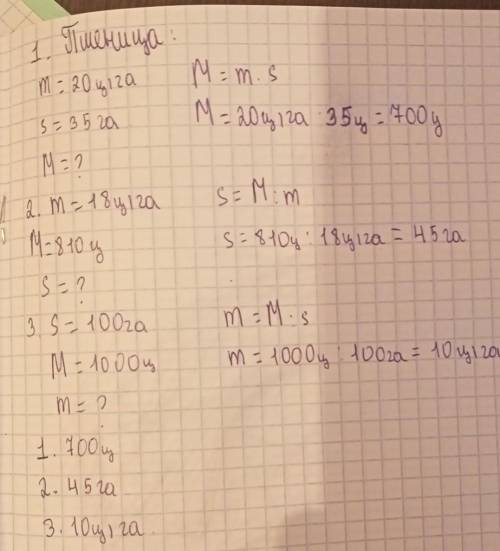 1. Пшеница:
m = 20ц/га M = m · s
s = 35 га M = 20ц/га · 35ц = 700ц
M = ?
2. m = 18ц/га s = M : m
M = 810ц s = 810ц : 18ц/га = 45га
s = ?
3. s = 100га m = M : s
M = 1000ц m = 1000ц : 100га = 10ц/га
m = ?
1. 700ц
2. 45га
3. 10ц/га